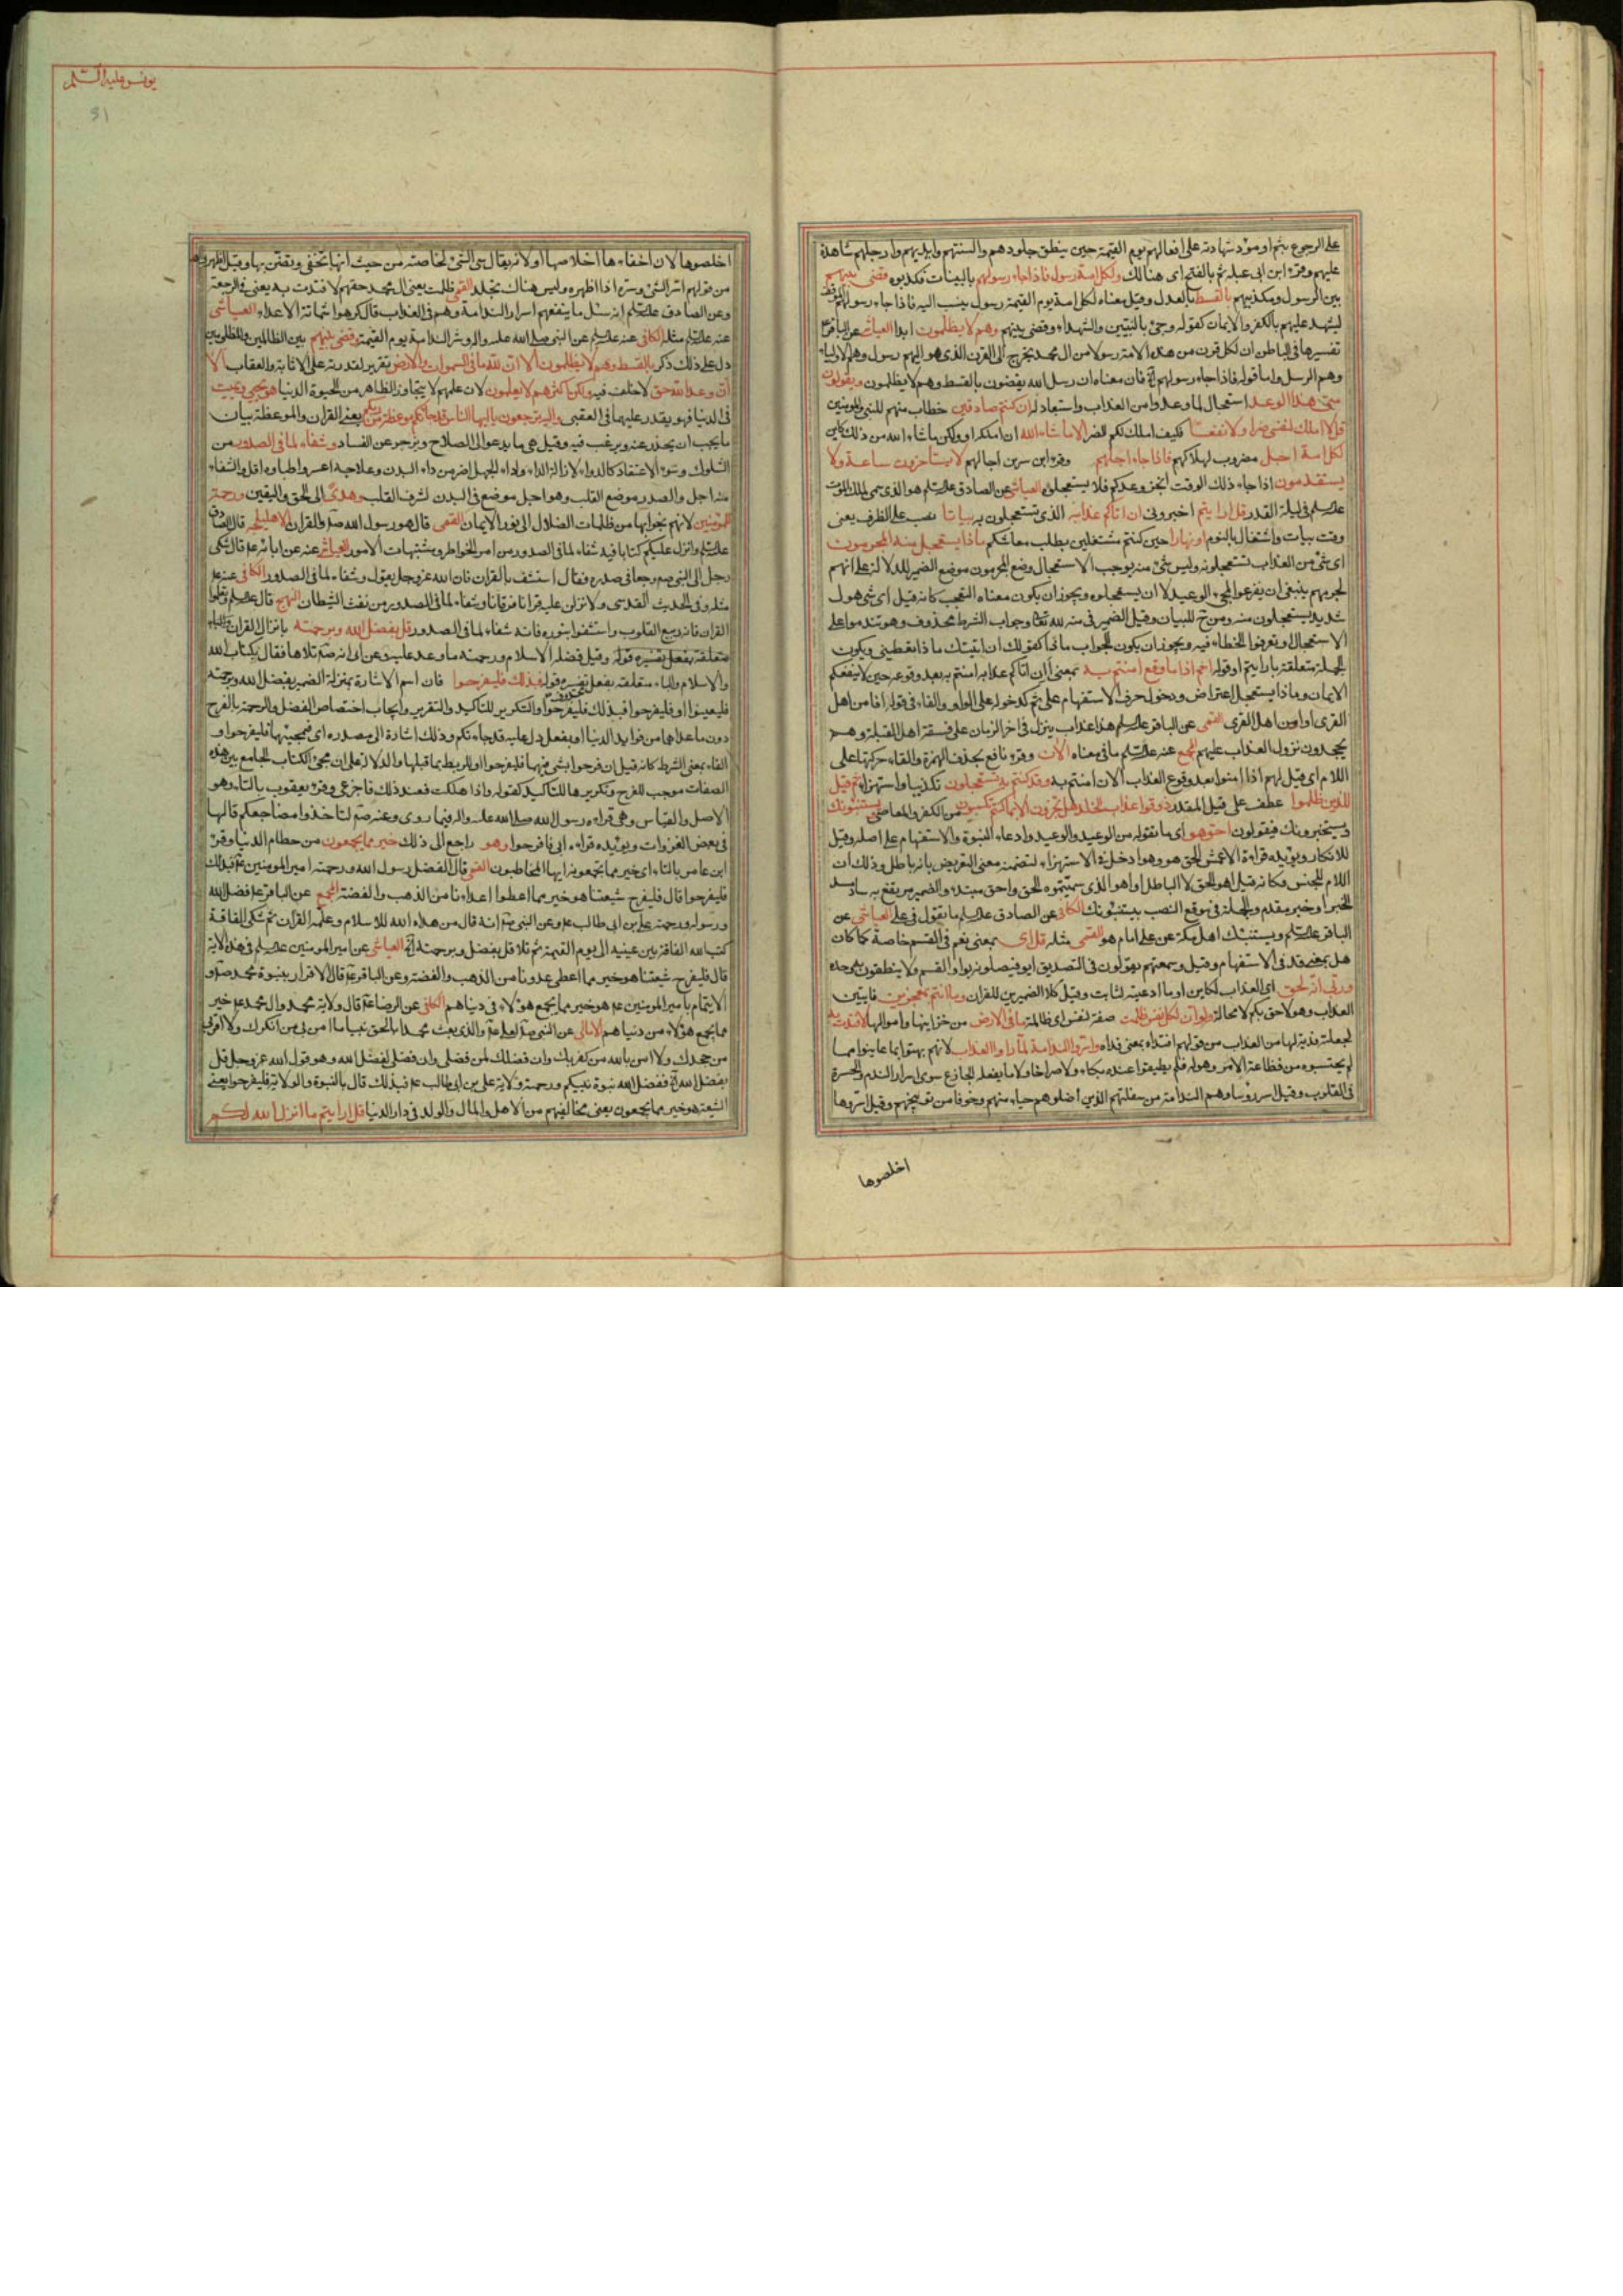 على الرجوع بثم او مؤد شهادته على افعالهم يوم القيمة حين ينطق جلودهم والسنتهم وايديهم وارجلهم شاهدة
عليهم وقرء ابن ابى عبلة ثم بالفتح اى هنالك ولكل امة رسول فاذا جاء رسولهم بالبينات فكذبوه قضى بينهم
بين الرسول ومكذبيهم بالقسط بالعدل وقيل معناه لكل امة يوم القيمة رسول ينسب اليه فاذا جاء رسولهم الموقف
ليشهد عليهم بالكفر والايمان كقوله وجئ بالنبيين والشهداء وقضى بينهم وهم لا يظلمون ابدا العياشى عن الباقر ع
تفسيرها فى الباطن ان لكل قرن من هذه الامة رسولا من ال محمد يخرج الى القرن الذى هو اليهم رسول وهم الاولياء
وهم الرسل واما قوله فاذا جاء رسولهم الآية فان معناه ان رسل الله يقضون بالقسط وهم لا يظلمون ويقولون
متى هذا الوعد استعجال لما وعدوا من العذاب واستبعاد له ان كنتم صادقين خطاب منهم للنبى والمؤمنين
قل لا املك لنفسى ضرا ولا نفعا فكيف املك لكم الضر الا ما شاء الله ان املكه او ولكن ما شاء الله من ذلك كاين
لكل امة اجل مضروب لهلاكهم فاذا جاء اجلهم وقرء ابن سرين اجالهم لا يستأخرون ساعة ولا
يستقدمون اذا جاء ذلك الوقت انجز وعدكم فلا يستعجلوه العياشى عن الصادق عليه السلم هو الذى سمى لملك الموت
عليه السلم فى ليلة القدر قل ارايتم اخبرونى ان اتاكم عذابه الذى تستعجلون به بياتا نصب على الظرف يعنى
وقت بيات واشتغال بالنوم او نهارا حين كنتم مشتغلين بطلب معاشكم ماذا يستعجل منه المجرمون
اى شئ من العذاب تستعجلونه وليس شئ منه يوجب الاستعجال وضع المجرمون موضع الضمير للدلالة على انهم
لجرمهم ينبغى ان يفزعوا لمجئ الوعيد لا ان يستعجلوه ويجوز ان يكون معناه التعجب كانه قيل اى شئ هول
شديد يستعجلون منه ومن ح للبيان وقيل الضمير فى منه لله تعالى وجواب الشرط محذوف وهو تندموا على
الاستعجال وتعرفوا الخطاء فيه ويجوز ان يكون الجواب ماذا كقولك ان اتيتك ماذا تعطينى ويكون
الجملة متعلقة بارايتم او قوله اثم اذا ما وقع امنتم به بمعنى ان اتاكم عذابه امنتم به بعد وقوعه حين لا ينفعكم
الايمان وماذا يستعجل اعتراض ودخول حرف الاستفهام على ثم كدخوله على الواو والفاء فى قوله افامن اهل
القرى اوامن اهل القرى القمى عن الباقر عليه السلم هذا عذاب ينزل فى اخر الزمان على فسقة اهل القبلة وهم
يجحدون نزول العذاب عليهم المجمع عنه عليه السلم ما فى معناه الآن وقرء نافع بحذف الهمزة والقاء حركتها على
اللام اى قيل لهم اذا امنوا بعد وقوع العذاب الان امنتم به وقد كنتم به تستعجلون تكذيبا واستهزاء ثم قيل
للذين ظلموا عطف على قيل المقدر ذوقوا عذاب الخلد هل تجزون الا بما كنتم تكسبون من الكفر والمعاصى يستنبئونك
ويستخبرونك فيقولون احق هو اى ما تقوله من الوعد والوعيد وادعاء النبوة والاستفهام على اصله وقيل
للانكار ويؤيده قراءة الاعمش الحق هو وهو ادخل فى الاستهزاء لتضمنه معنى التعريض بانه باطل وذلك ان
اللام للجنس فكانه قيل اهو الحق لا الباطل او اهو الذى سميتموه الحق واحق مبتدء والضمير مرتفع به ساد مسد
الخبر او خبر مقدم والجملة فى موقع النصب بيستنبئونك الكافى عن الصادق عليه السلم ما تقول فى على العياشى عن
الباقر عليه السلم ويستنبئك اهل مكة عن على امام هو القمى مثله قل اى بمعنى نعم فى القسم خاصة كما كان
هل بمعنى قد فى الاستفهام وقيل وسمعتهم يقولون فى التصديق ايو فيصلونه بواو القسم ولا ينطقون به وحده
وربى انه لحق اى العذاب لكاين او ما ادعيته لثابت وقيل كلا الضميرين للقران وما انتم بمعجزين فايتين
العذاب وهو لاحق بكم لا محالة ولو ان لكل نفس ظلمت صفة لنفس اى ظالمة ما فى الارض من خزاينها واموالها لافتدت به
لجعلته فدية لها من العذاب من قولهم افتداه بمعنى فداه واسروا الندامة لما راوا العذاب لانهم بهتوا بما عاينوا مما
لم يحتسبوه من فظاعة الامر وهوله فلم يطيقوا عنده بكاء ولا صراخا ولا ما يفعله الجازع سوى اسرار الندم والحسرة
فى القلوب وقيل اسر رؤساوهم الندامة من سفلتهم الذين اضلوهم حياء منهم وخوفا من توبيخهم وقيل اسروها
اخلصوها
يونس عليه السلم
31
اخلصوها لان اخفاءها اخلاصها او لانه يقال سر الشئ لخالصته من حيث انها تخفى ويضن بها وقيل اظهروها
من قولهم اسر الشئ وسره اذا اظهره وليس هناك تجلد القمى ظلمت يعنى ال محمد حقهم لافتدت به يعنى فى الرجعة
وعن الصادق عليه السلم انه سئل ما ينفعهم اسرار الندامة وهم فى العذاب قال كرهوا شماتة الاعداء العياشى
عنه عليه السلم مثله الكافى عنه عليه السلم عن النبى صلى الله عليه واله وشر الندامة يوم القيمة وقضى بينهم بين الظالمين والمظلومين
دل على ذلك ذكر بالقسط وهم لا يظلمون الا ان لله ما فى السموات والارض تقرير لقدرته على الاثابة والعقاب الا
ان وعد الله حق لا خلف فيه ولكن اكثرهم لا يعلمون لان علمهم لا يتجاوز الظاهر من الحيوة الدنيا هو يحيى ويميت
فى الدنيا فهو يقدر عليهما فى العقبى واليه ترجعون يا ايها الناس قد جائتكم موعظة من ربكم يعنى القران والموعظة بيان
ما يجب ان يحذر عنه ويرغب فيه وقيل هى ما يدعو الى الصلاح ويزجر عن الفساد وشفاء لما فى الصدور من
الشكوك وسوء الاعتقاد كالدواء لازالة الداء وداء الجهل اضر من داء البدن وعلاجه اعسر واطباوه اقل والشفاء
منه اجل والصدر موضع القلب وهو اجل موضع فى البدن لشرف القلب وهدى الى الحق واليقين ورحمة
للمؤمنين لانهم نجوا بها من ظلمات الضلال الى نور الايمان القمى قال هو رسول الله ص والقران الاهليلجة قال الصادق
عليه السلم وانزل عليكم كتابا فيه شفاء لما فى الصدور من امر الخواطر ومشتبهات الامور العياشى عنه عن ابائه ع قال شكى
رجل الى النبى ص وجعا فى صدره فقال استشف بالقران فان الله عز وجل يقول وشفاء لما فى الصدور الكافى عنه ع
مثله وفى الحديث القدسى ولانزلن عليه قرانا فرقانا وشفاء لما فى الصدور من نفث الشيطان النهج قال عليه السلم وتعلموا
القران فانه ربيع القلوب واستشفوا بنوره فانه شفاء لما فى الصدور قل بفضل الله وبرحمته بانزال القران والباء
متعلقة بفعل يفسره قوله وقيل فضله الاسلام ورحمته ما وعد عليه وعن ابى انه ص تلاها فقال بكتاب الله
والاسلام والباء متعلقة بفعل يفسره قوله فبذلك فليفرحوا فان اسم الاشارة بمنزلة الضمير بفضل الله ورحمته
فليعتنوا او فليفرحوا فبذلك فليفرحوا والتكرير للتاكيد والتقرير وايجاب اختصاص الفضل والرحمة بالفرح
دون ما عداهما من فوايد الدنيا او بفعل دل عليه قد جائتكم وذلك اشارة الى مصدره اى فبمجيئها فليفرحوا و
الفاء بمعنى الشرط كانه قيل ان فرحوا بشئ فبهما فليفرحوا او للربط بما قبلها والدلالة على ان مجئ الكتاب الجامع بين هذه
الصفات موجب للفرح وتكريرها للتاكيد كقوله واذا هلكت فعند ذلك فاجزعى وقرء يعقوب بالتاء وهو
الاصل والقياس وهى قراءة رسول الله صلى الله عليه واله فيما روى وعنه ص لتاخذوا مضاجعكم قالها
فى بعض الغزوات ويؤيده قراءة ابى فافرحوا وهو راجع الى ذلك خير مما يجمعون من حطام الدنيا وقرء
ابن عامر بالتاء اى خير مما تجمعونه ايها المخاطبون القمى قال الفضل رسول الله ورحمته امير المومنين ع فبذلك
فليفرحوا قال فليفرح شيعتنا هو خير مما اعطوا اعداءنا من الذهب والفضة المجمع عن الباقر ع فضل الله
ورسوله ورحمته على بن ابى طالب ع وعن النبى ص انه قال من هداه الله للاسلام وعلمه القران ثم شكى الفاقة
كتب الله الفاقة بين عينيه الى يوم القيمة ثم تلا قل بفضل وبرحمته الآية العياشى عن امير المومنين عليه السلم فى هذه الاية
قال فليفرح شيعتنا هو خير مما اعطى عدونا من الذهب والفضة وعن الباقر ع قال الاقرار بنبوة محمد ص و
الايتمام بامير المومنين ع هو خير مما يجمع هؤلاء فى دنياهم الكافى عن الرضا ع قال ولاية محمد وال محمد ع خير
مما يجمع هؤلاء من دنياهم الامالى عن النبى ص لعلى ع والذى بعث محمدا بالحق نبيا ما امن بى من انكرك ولا اقر بى
من جحدك ولا امن بالله من كفر بك وان فضلك لمن فضلى وان فضلى لفضل الله وهو قول الله عز وجل قل
بفضل الله الآية ففضل الله نبوة نبيكم ورحمته ولاية على بن ابى طالب ع فبذلك قال بالنبوة والولاية فليفرحوا يعنى
الشيعة هو خير مما يجمعون يعنى مخالفيهم من الاهل والمال والولد فى دار الدنيا قل ارايتم ما انزل الله لكم